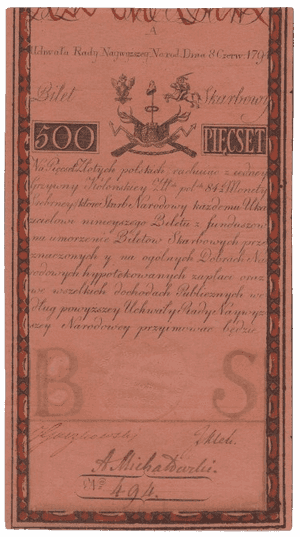 A
Uchwała Rady Naywyższey Narod. Dnia 8 Czerw: 179
Bilet Skarbowy
500 PIĘCSET
Na Pięcset Złotych polskich, rachuiąc z iedney
Grzywny Kolonskiey Złł. pol. 84½ Monety
Srebrney, które Skarb Narodowy każdemu Oka
zicielowi ninieyszego Biletu z funduszow
na umorzenie Biletow Skarbowych prze
znaczonych y na ogolnych Dobrach Na
rodowych hypotekowanych zapłaci oraz
we wszelkich dochodach Publicznych we
dług powyższey Uchwały Rady Naywyż
szey Narodowey przyimować będzie
B S
A. Michałowski
N° 494.